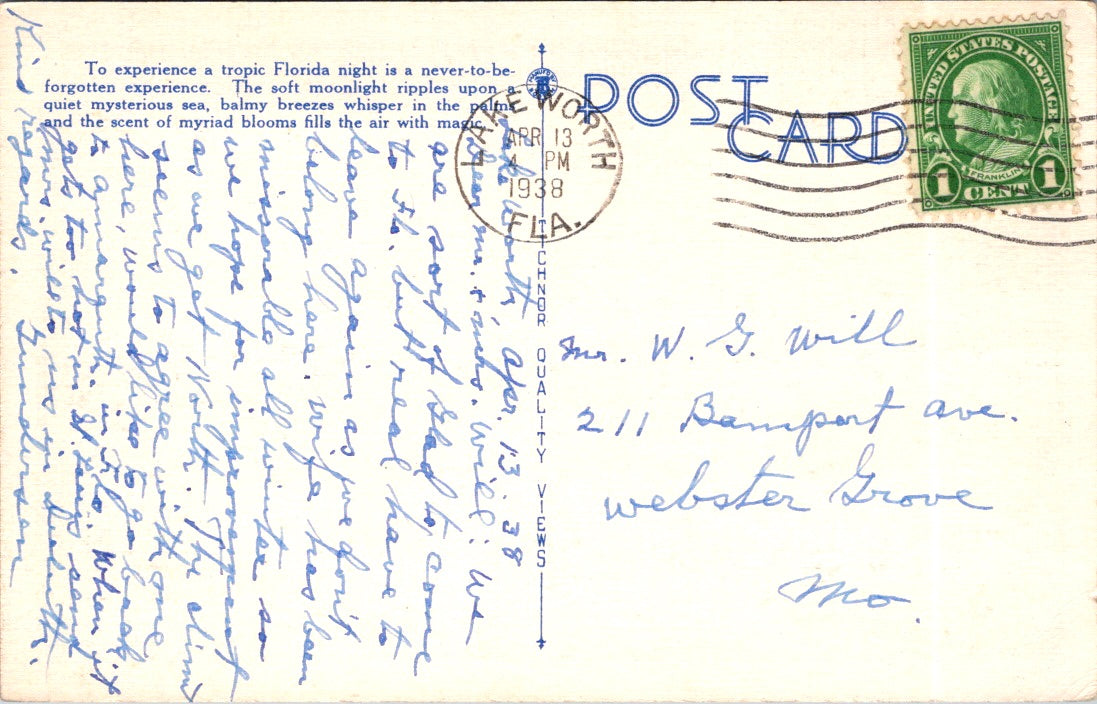 To experience a tropic Florida night is a never-to-be-
forgotten experience. The soft moonlight ripples upon a
quiet mysterious sea, balmy breezes whisper in the palms
and the scent of myriad blooms fills the air with magic.
POST
CARD
LAKE WORTH
APR 13
4 PM
1938
FLA.
UNITED STATES POSTAGE
FRANKLIN
1 CENT 1
CHNOR QUALITY VIEWS
Lake Worth Apr. 13. 38
Dear Mr. & Mrs. Will: We
are sort of glad to come
to Fla. but real have to
leave again as we don't
belong here. Wife has been
miserable all winter so
we hope for improvement
as we get North. The clim
seems to agree with one
here, would like to go back
to in Fla When it
gets too hot in St. Louis send
Mrs. Will to us in Duluth.
Kind regards. Gunderson
Mr. W. G. Will
211 Bamport Ave.
Webster Grove
Mo.